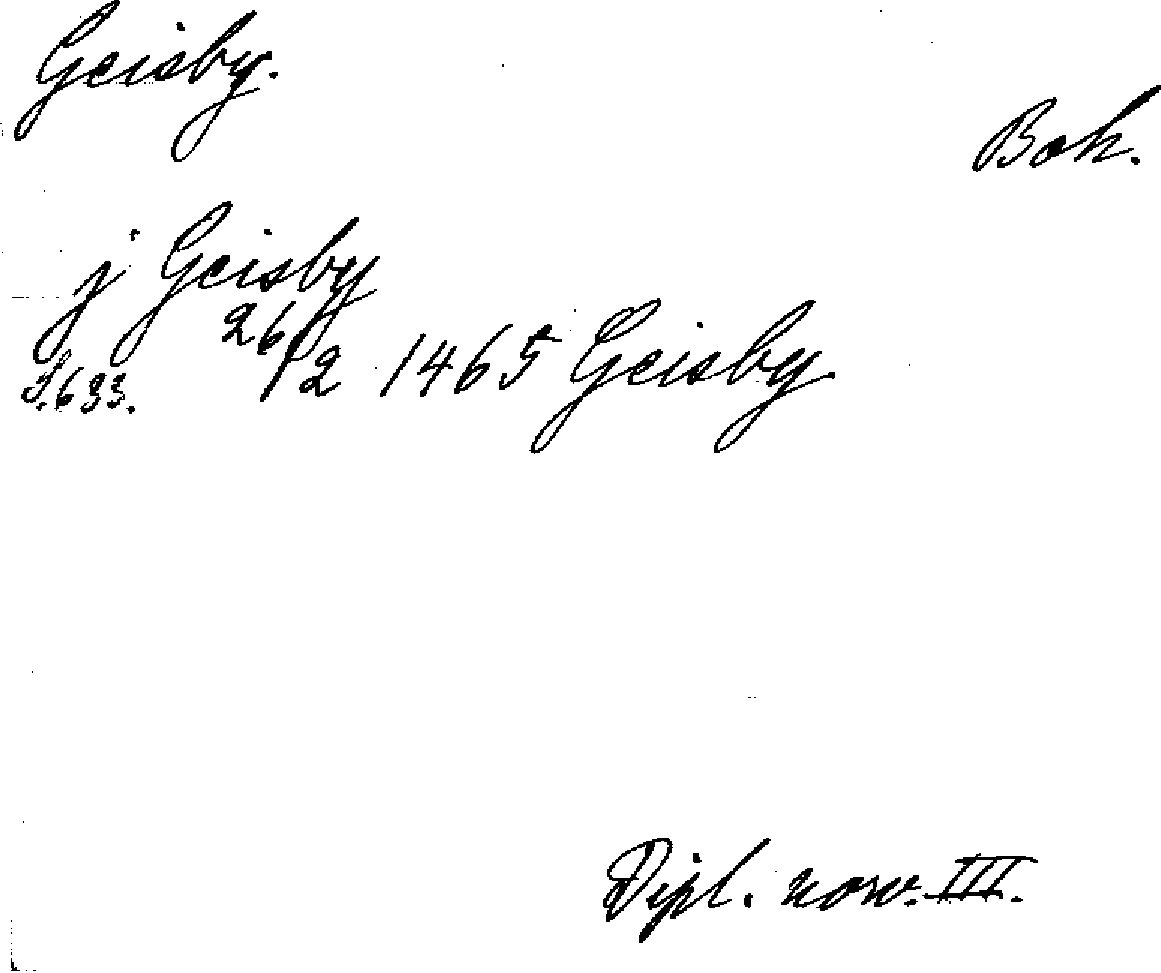 Geisby.
Boh.
j Geisby
26/2 1465 Geisby
S. 633.
Dipl. norv. III.